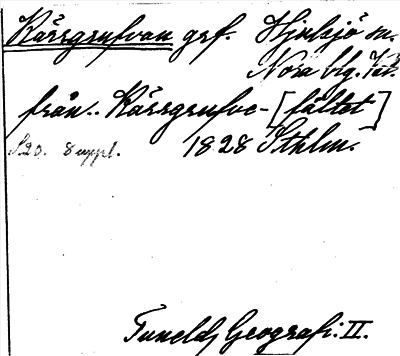 Kärrgrufvan grf. Hjulsjö sn.
Nora blg. Väst.
från.. Kärrgrufve-[fältet]
S. 20. 8 uppl. 1828 Sthlm.
Tunelds Geografi. II.